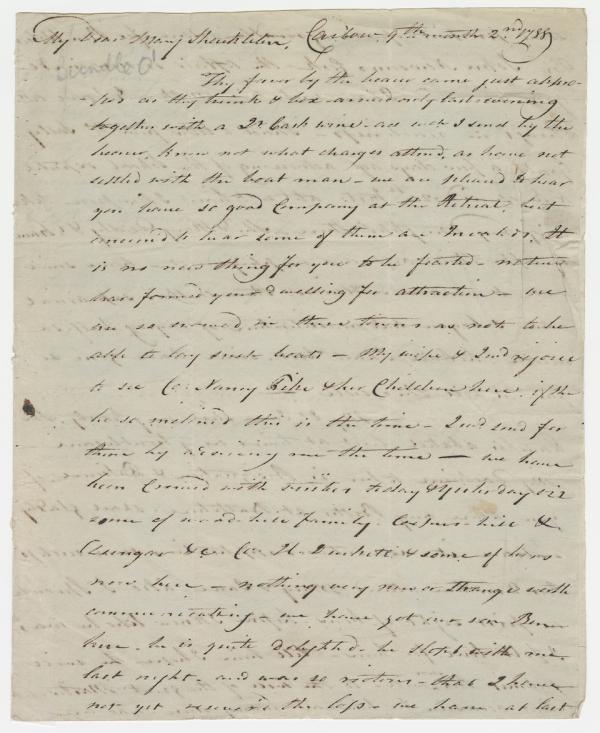 My Dear Mary Shackleton, Carlow 9th month 2nd 1788
Thy favor by the bearer came just apropos
-pos as thy trunk & box arrived only last evening
together with a Qr Cask wine - all wch I send by the
bearer, know not what charges attend, as have not
settled with the boat man - we are pleased to hear
you have so good Company at the Retreat, but
concernd to hear some of them are Invalids. It
is no new thing for you to be feasted - nature
has formed your dwelling for attraction - we
are so crowded in these towns as not to be
able to lay such boasts - My wife & I wd rejoice
to see Co: Nancy & her Children here, if she
be so inclined this is the time - I wd send for
them by advising me the time - we have
been Crowded with visitors today & yesterday viz
some of family. &
& Co. & some of hers
now here - nothing very new or strange worth
communicating we have got our son Ben
here. he is quite delighted. he slept with me
last night - and was so - that I have
not yet recover'd the loss - we have at last